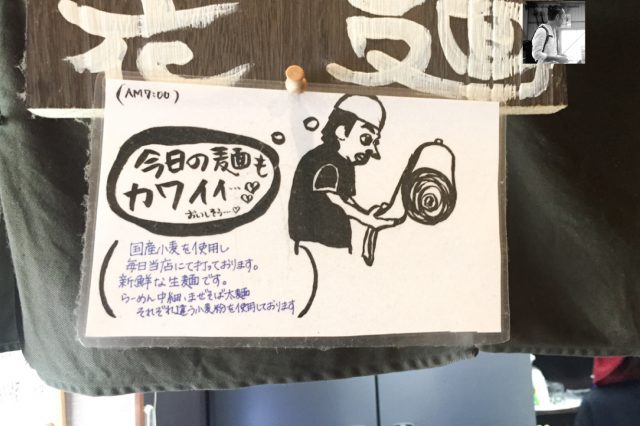 麺
(AM7:00)
今日の麺も
カワイイ…♡
おいしそう…♡
国産小麦を使用し
毎日当店にて打っております。
新鮮な生麺です。
らーめん中細、まぜそば太麺
それぞれ違う小麦粉を使用しております